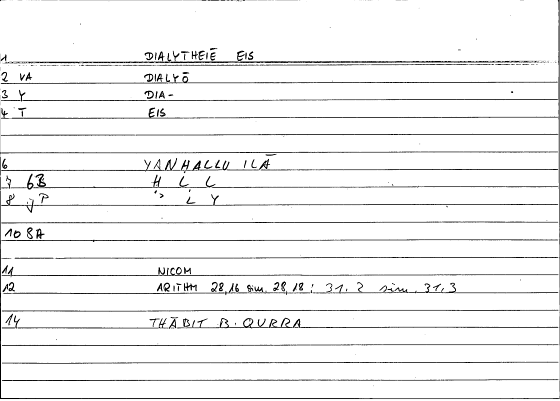 1 DIALYTHEIĒ EIS
2 VA DIALYŌ
3 Y DIA-
4 T EIS
6 YANḤALLU ILĀ
7 6B Ḥ L L
8 jP ' L Y
10 8A
11 NICOM
12 ARITHM 28,16 sim. 28,18; 31,2 sim. 31,3
14 THĀBIT B. QURRA